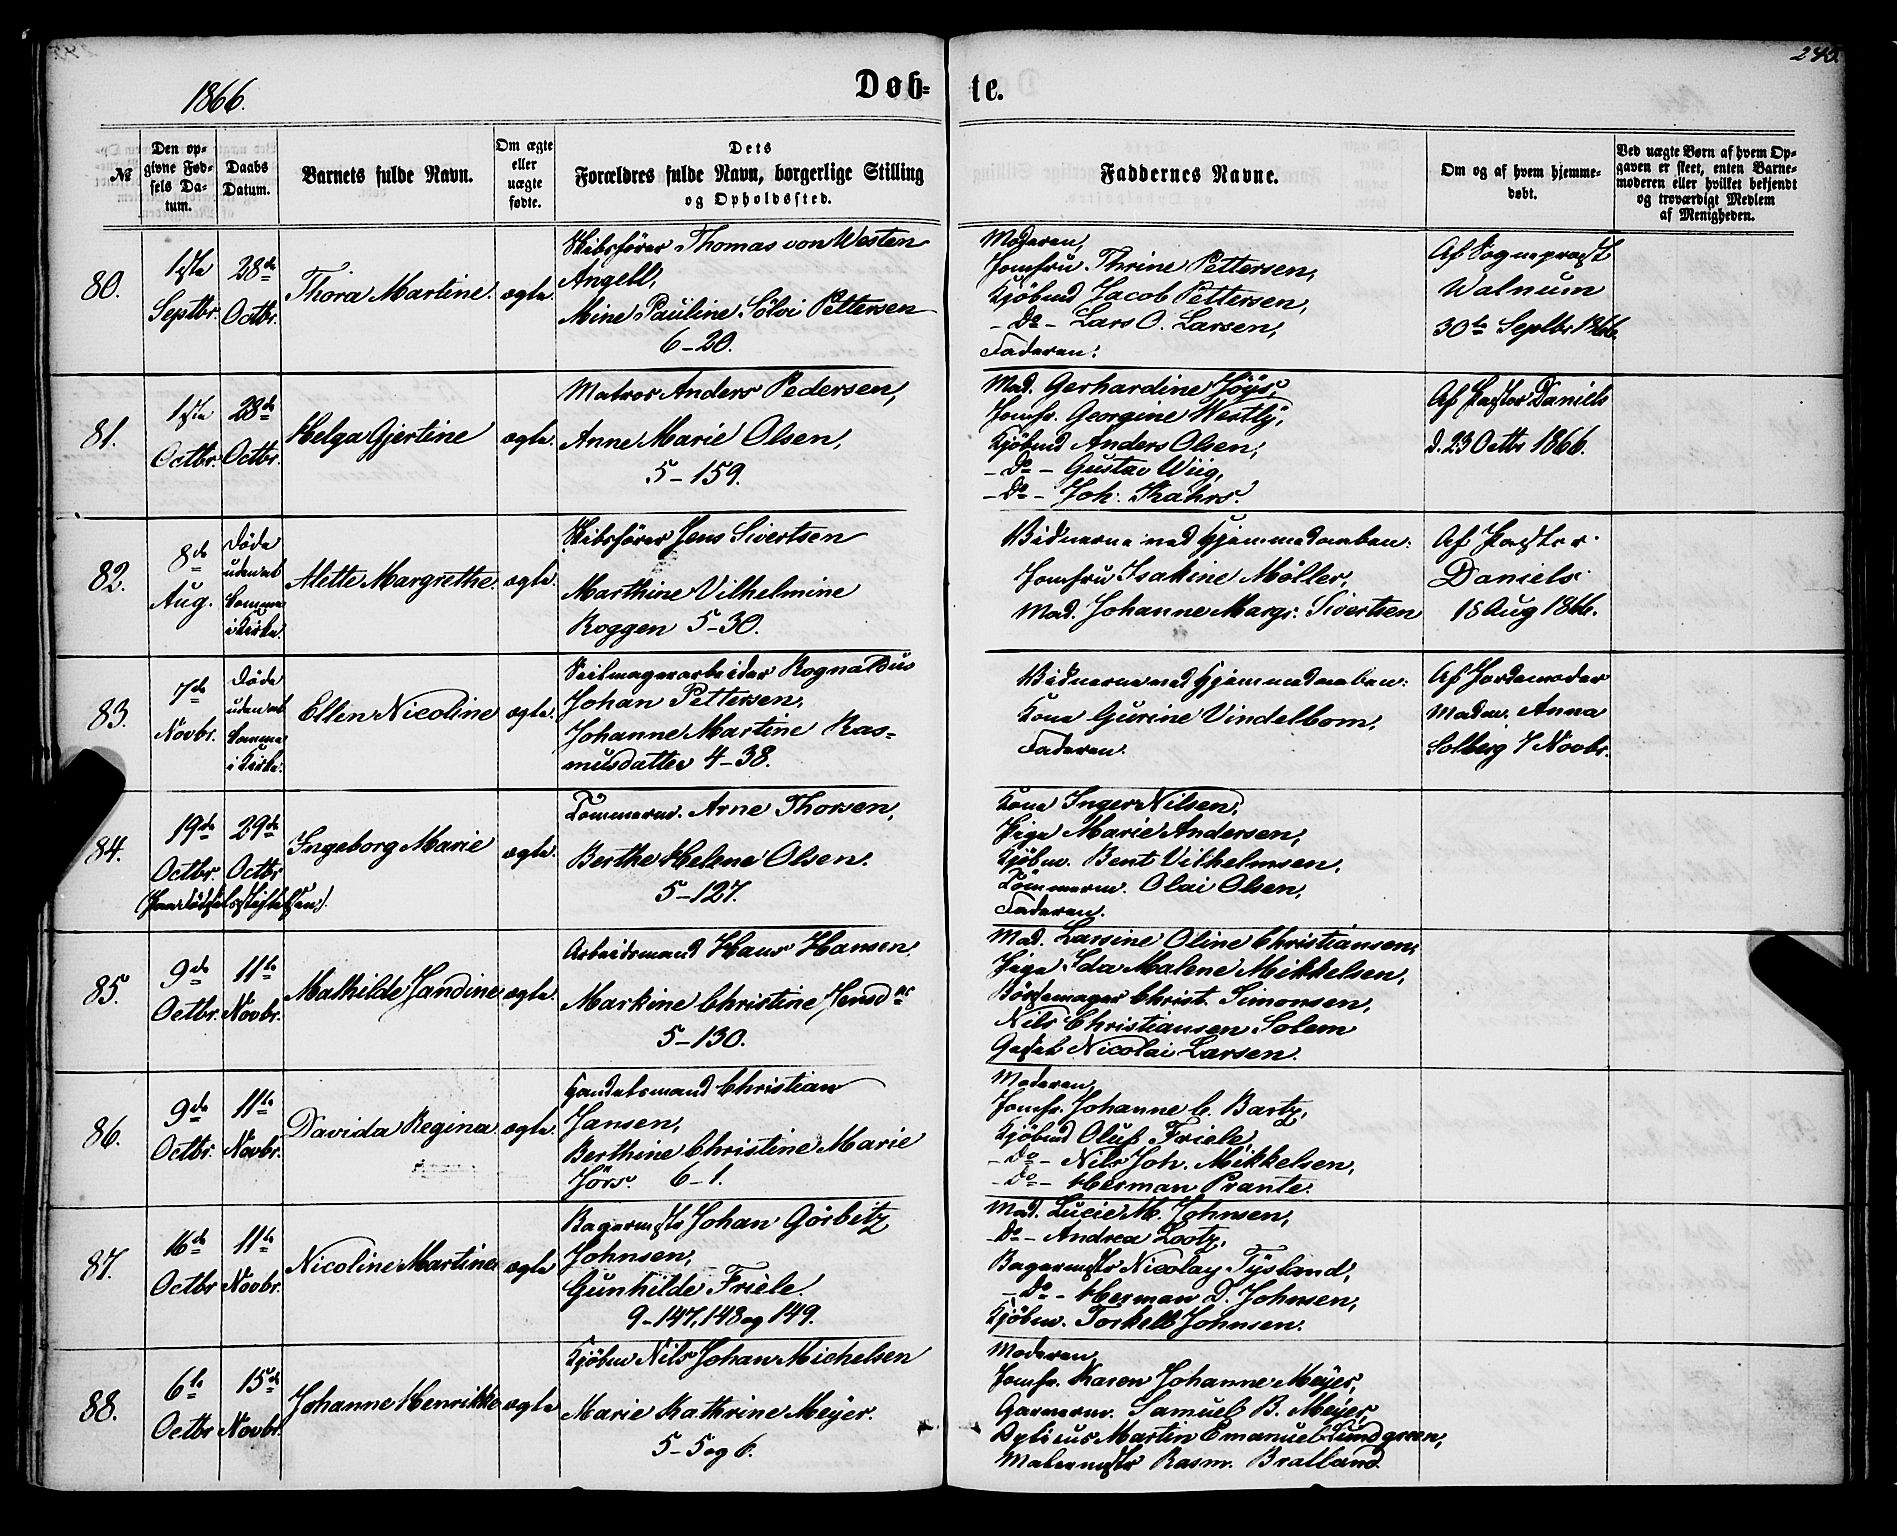 240.
1866.
Døb-
te.
№
Den op-
givne Fød-
sels Da-
tum.
Daabs
Datum.
Barnets fulde Navn.
Om ægte
eller
uægte
fødte.
Dets
Forældres fulde Navn, borgerlige Stilling
og Opholdssted.
Faddernes Navne.
Om og af hvem hjemme-
døbt.
Ved uægte Børn af hvem Op-
gaven er skeet, enten Barne-
moderen eller hvilket bekjendt
og troværdigt Medlem
af Menigheden.
80.
1ste
Septbr.
28de
Octbr.
Thora Martine.
ægte.
Skibsfører Thomas von Westen
Angell,
Mine Pauline Sølvi Pettersen
6-20.
Moderen,
Jomfru Thrine Pettersen,
Kjøbmd Jacob Pettersen,
-Do- Lars O. Larsen,
Faderen.
Af Sogneprest
Walnum
30te Septbr 1866.
81.
1ste
Octbr.
28de
Octbr.
Helga Gjertine
ægte.
Matros Anders Pedersen,
Anne Marie Olsen,
5-159.
Mad. Gerhardine Høys,
Jomfr. Georgine Westly,
Kjøbmd Anders Olsen,
-Do- Gustav Wiig,
-Do- Joh. Kahrs.
Af Pastor Daniels
d. 23 Octbr 1866.
82.
8de
Aug.
Døde
uden at
komme
i Kirke.
Alette Margrethe.
ægte.
Skibsfører Jens Sivertsen
Marthine Vilhelmine
Roggen 5-30.
Vidnerne ved Hjemmedaaben:
Jomfru Isakine Møller,
Mad. Johanne Margr. Sivertsen
Af Pastor
Daniels
15 Aug 1866.
83.
7de
Novbr.
Døde
uden at
komme
i Kirke.
Ellen Nicoline
ægte.
Seilmagerarbeider Rognaldus
Johan Pettersen,
Johanne Martine Ras-
musdatter 4-38.
Vidnerne ved Hjemmedaaben:
Kone Gurine Vindelbom,
Faderen.
Af Jordemoder
Madm. Anna
Solberg 7 Novbr.
84.
19de
Octbr.
29de
Octbr
(Paa Fødselsstiftelsen).
Ingeborg Marie
ægte.
Tømmerm. Arne Thorsen,
Berthe Helene Olsen.
5-127.
Kone Inger Nilsen,
Pige Marie Andersen,
Kjøbm. Bent Vilhelmsen,
Tømmerm. Olai Olsen,
Faderen.
85.
9de
Octbr.
11te
Novbr.
Mathilde Jandine
ægte.
Arbeidsmand Hans Hansen
Markine Christine Jensdtr
5-130.
Mad. Larsine Oline Christiansen,
Pige Ida Malene Mikkelsen,
Børstemager Christ. Simonsen,
Nils Christiansen Solem
Nicolai Larsen.
86.
9de
Octbr.
11te
Novbr.
Davida Regina.
ægte.
Handelsmand Christian
Jansen,
Berthine Christine Marie
Jørs. 6-1.
Moderen,
Jomfr. Johanne C. Bartz,
Kjøbmd Oluf Friele,
-Do- Nils Joh. Mikkelsen,
-Do- Herman Prante.
87.
16de
Octbr
11te
Novbr.
Nicoline Martine
ægte
Bagermstr Johan Görbitz
Johnsen,
Gunhilde Friele.
9-147, 148 og 149.
Mad. Lucie M. Johnsen,
-Do- Andrea Lootz,
Bagermstr Nicolay Tysland,
-Do- Herman D. Johnsen,
Kjøbm. Torkell Johnsen.
88.
6te
Octbr
15de
Novbr.
Johanne Henrikke
ægte
Kjøbm Nils Johan Michelsen
Marie Kathrine Meyer.
5-5 og 6.
Moderen,
Jomfr. Karen Johanne Meyer,
Garverm. Samuel B. Meyer,
Martin Emanuel Lundgreen,
Malermstr Rasm. Bratland.